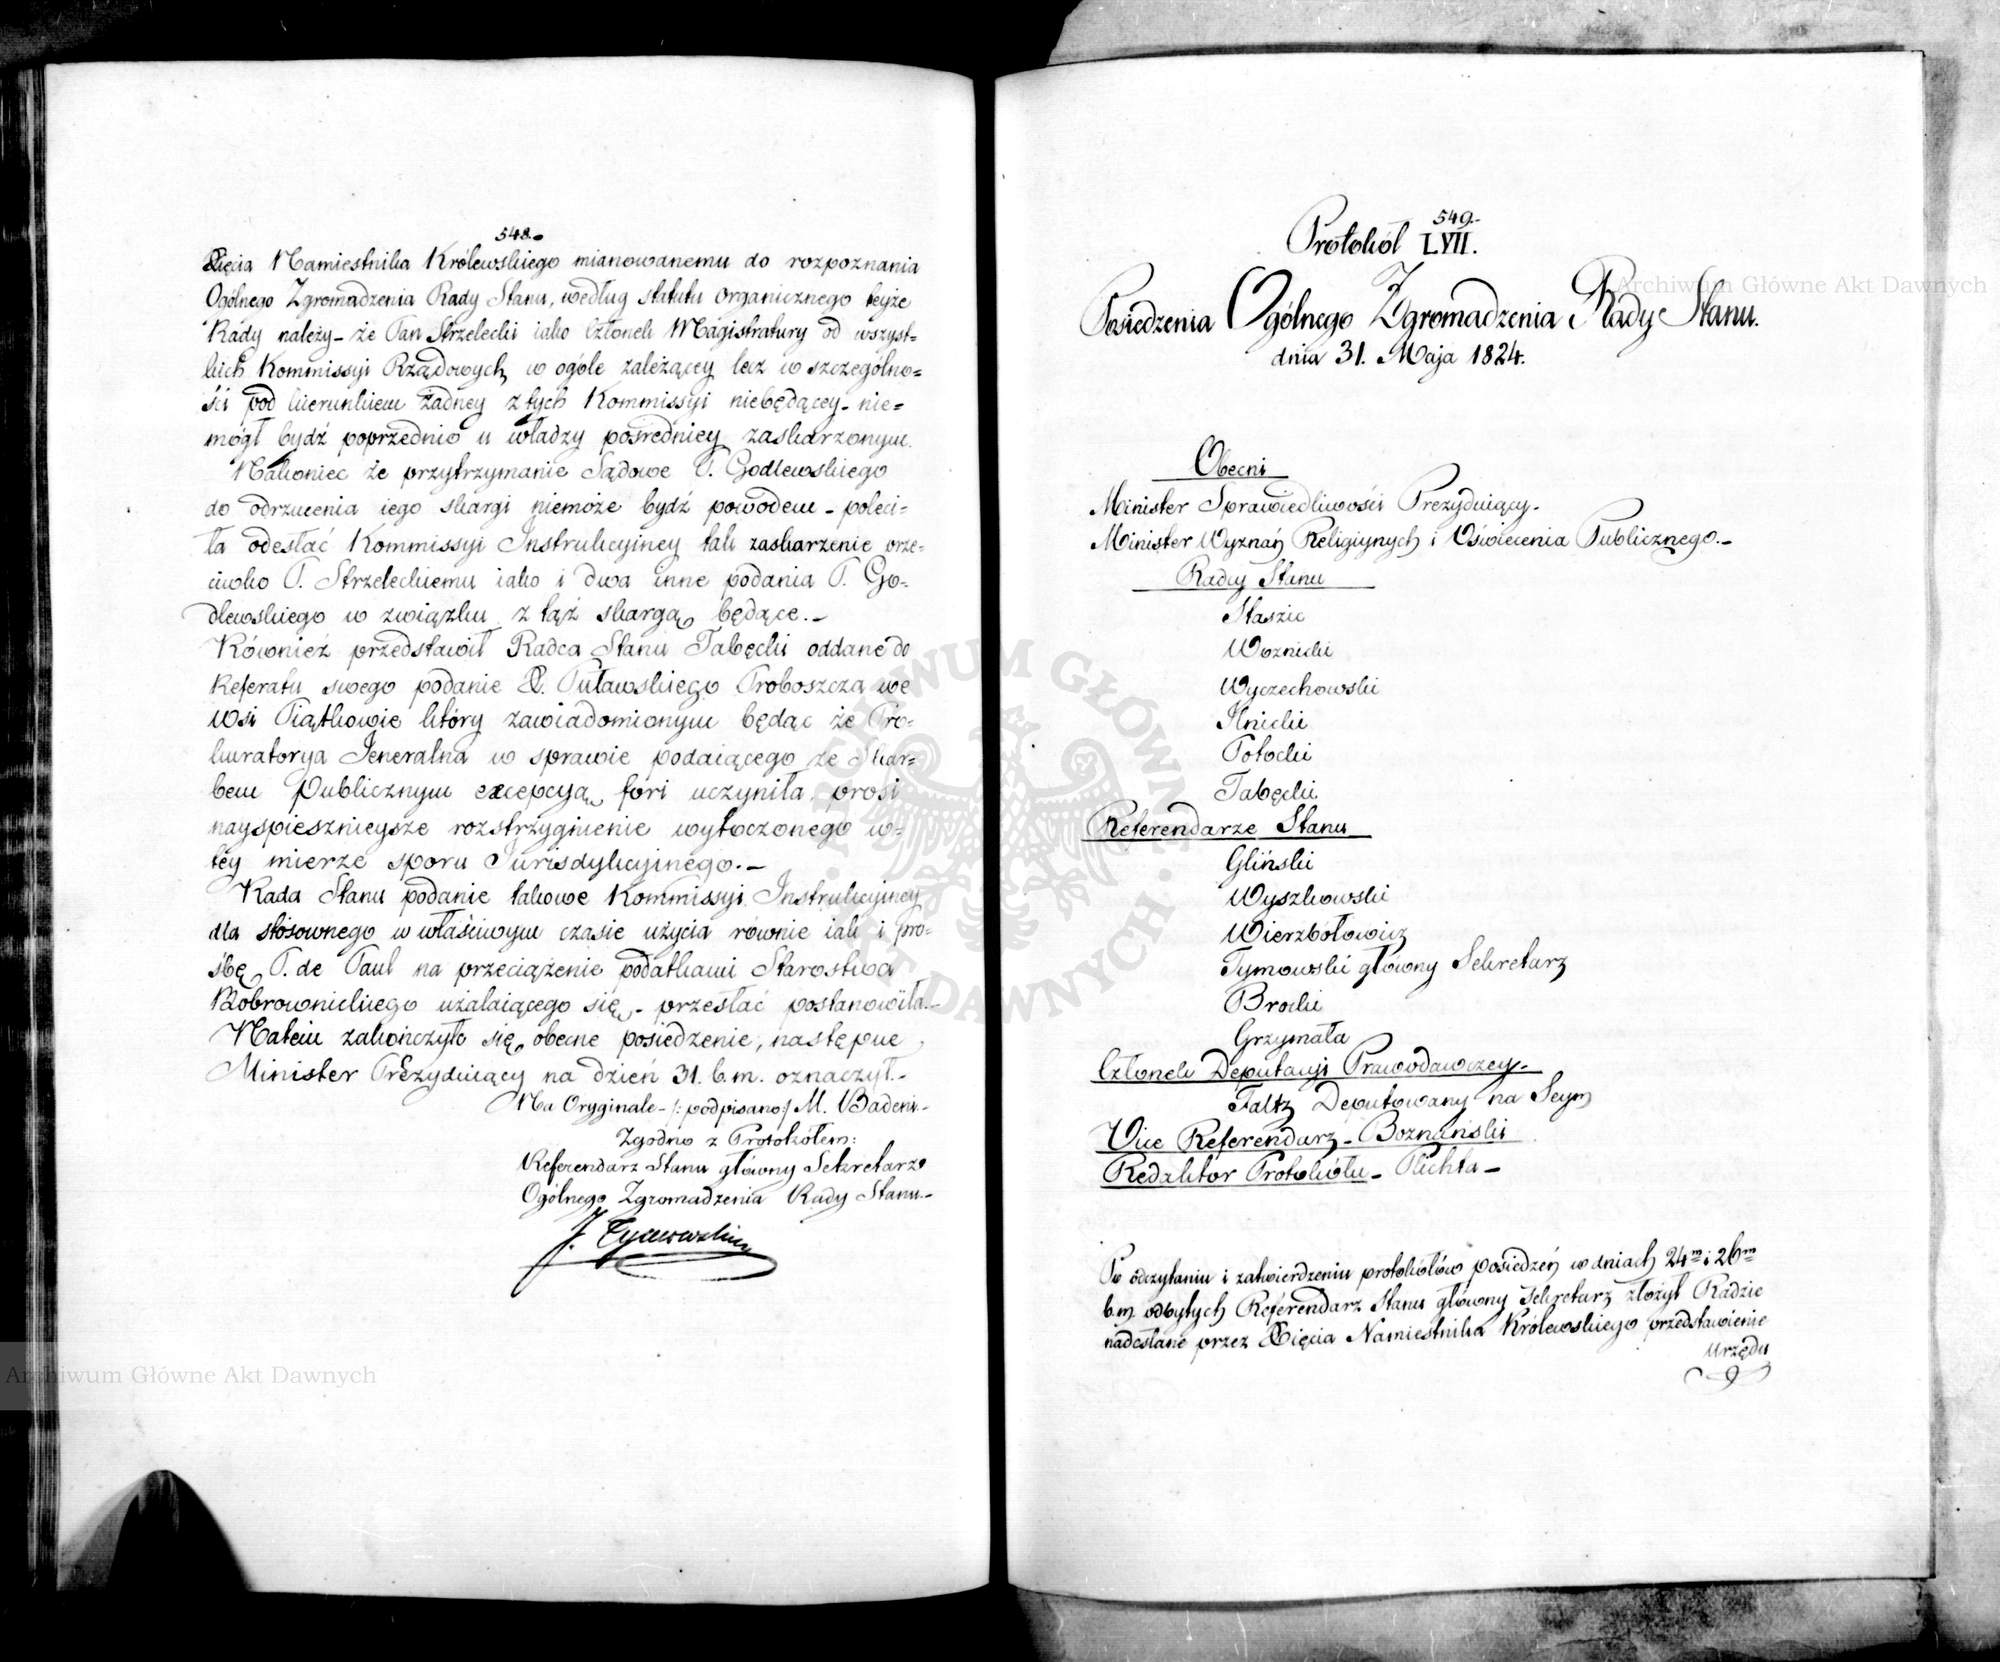 548.
Xięcia Namiestnika Królewskiego mianowanemu do rozpoznania
Ogólnego Zgromadzenia Rady Stanu, według statutu organicznego teyże
Rady należy - że Pan Strzelecki iako Członek Magistratury od wszyst=
kich Kommissyi Rządowych w ogóle zależącey lecz w szczególno=
ści pod kierunkiem żadney z tych Kommissyi niebędącey - nie=
mógł bydź poprzednio u władzy pośredniey zaskarzonym.
Nakoniec że przytrzymanie Sądowe P. Godlewskiego
do odrzucenia iego skargi niemoże bydź powodem - poleci-
ła odesłać Kommissyi Instrukcyiney tak zaskarzenie prze-
ciwko P. Strzeleckiemu iako i dwa inne podania P. Go-
dlewskiego w związku z tąż skargą będące. -
Również przedstawił Radca Stanu Tabęcki oddane do
Referatu swego podanie X. Puławskiego Proboszcza we
Wsi Piątkowie który zawiadomionym będąc że Pro-
kuratorya Jeneralna w sprawie podaiącego ze Skar-
bem Publicznym excepcyą fori uczyniła, prosi
nayspiesznieysze rozstrzygnienie wytoczonego w-
tey mierze sporu Jurisdykcyjnego. -
Rada Stanu podanie takowe Kommissyi Instrukcyiney
dla stósownego w właściwym czasie użycia równie iak i pro-
śbę P. de Paul na przeciążenie podatkami Starostwa
Bobrownickiego użalaiącego się - przesłać postanowiła. -
Natem zakończyło się obecne posiedzenie, następne
Minister Prezyduiący na dzień 31. b.m. oznaczył. -
Na Oryginale - /: podpisano:/ M. Badeni. -
Zgodno z Protokółem:
Referendarz Stanu główny Sekretarz
Ogólnego Zgromadzenia Rady Stanu. -
J. Tymowski
549. -
Protokół LVII.
Posiedzenia Ogólnego Zgromadzenia Rady Stanu.
dnia 31. Maja 1824.
Obecni
Minister Sprawiedliwości Prezyduiący. -
Minister Wyznań Religiynych i Oświecenia Publicznego. -
Radcy Stanu
Staszic
Woznicki
Wyczechowski
Ilnicki
Potocki
Tabęcki
Referendarze Stanu
Gliński
Wyszkowski
Wierzbółowicz
Tymowski główny Sekretarz
Brocki
Grzymała
Członek Deputacyi Prawodawczey. -
Faltz Deputowany na Seym
Vice Referendarz - Boznański
Redaktor Protokółu - Plichta -
Po odczytaniu i zatwierdzeniu protokółów posiedzeń w dniach 24m i 26m
b.m. odbytych Referendarz Stanu główny Sekretarz złożył Radzie
nadesłane przez Xięcia Namiestnika Królewskiego przedstawienie
Urzędu
Archiwum Główne Akt Dawnych
Archiwum Główne Akt Dawnych
ARCHIWUM GŁÓWNE AKT DAWNYCH